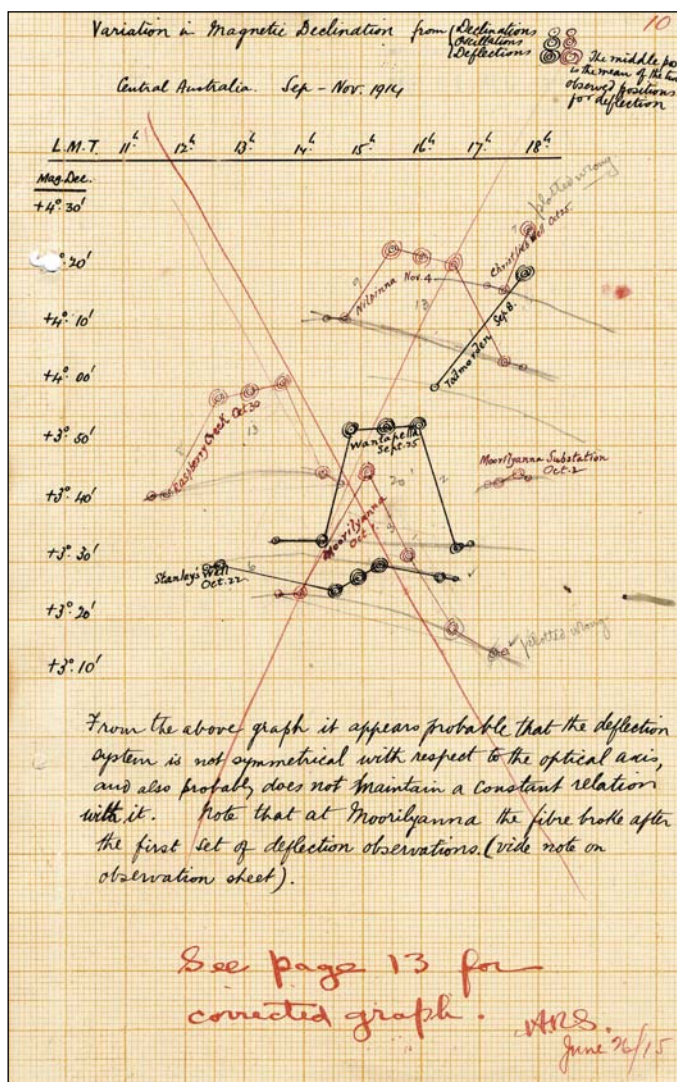 10
Variation in Magnetic Declination from { Declinations
Oscillations
Deflections
The middle pos
is the mean of the two
observed positions
for deflection
Central Australia. Sep - Nov. 1914
L.M.T. 11h 12h 13h 14h 15h 16h 17h 18h
Mag. Dec.
+4° 30'
° 20'
+4° 10'
+4° 00'
+3° 50'
+3° 40'
+3° 30'
+3° 20'
+3° 10'
plotted wrong
?
Christmas Well Oct 25
Nilpinna Nov. 4
9
13
Todmorden Sep 8.
Raspberry Creek Oct 30
8
13
Wantapella
Sept. 25
20'
2
Moorilyanna Substation
Oct. 2
Moorilyanna
Oct 1
9
Stanley's Well
Oct. 22
6
plotted wrong
From the above graph it appears probable that the deflection
system is not symmetrical with respect to the optical axis,
and also probably does not maintain a constant relation
with it. Note that at Moorilyanna the fibre broke after
the first set of deflection observations. (vide note on
observation sheet).
See page 13 for
corrected graph.
June 26/15